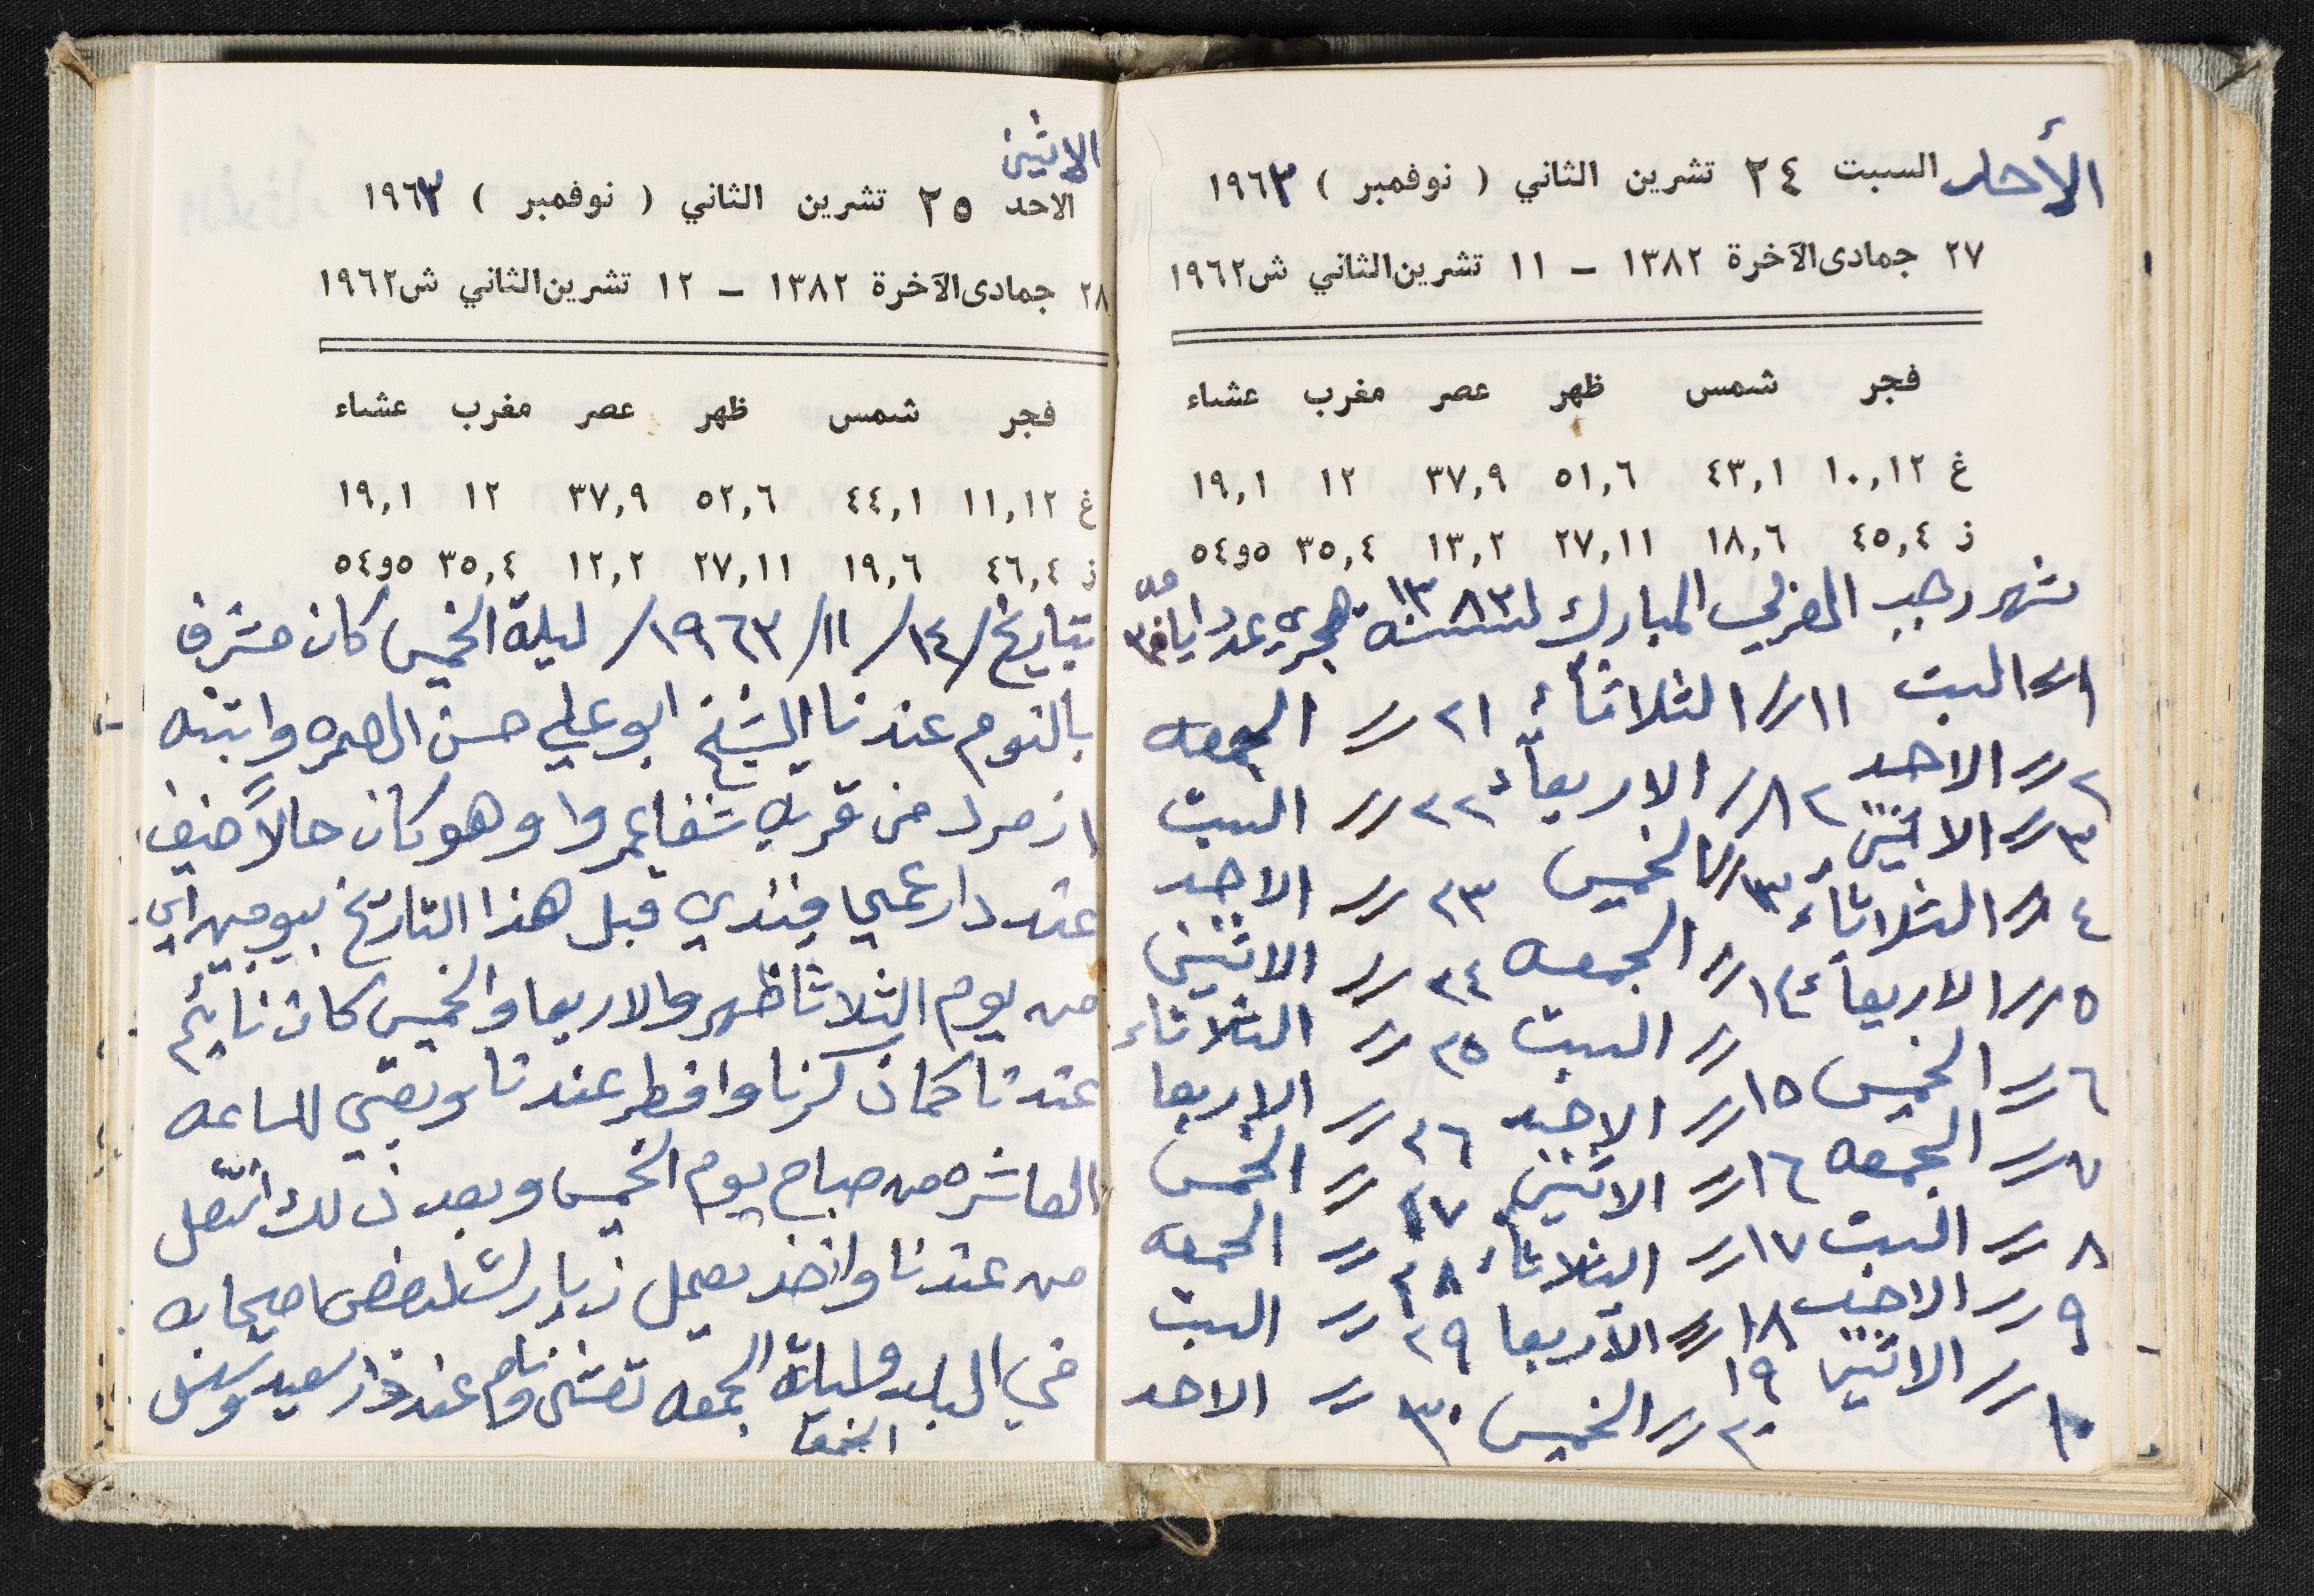 الأحد السبت ٢٤ تشرين الثاني ( نوفمبر ) ١٩٦٣
٢٧ جمادى الآخرة ١٣٨٢ – ١١ تشرين الثاني ش ١٩٦٢
فجر شمس ظهر عصر مغرب عشاء
غ ١٠,١٢ ٤٣,١ ٥١,٦ ٣٧,٩ ١٢ ١٩,١
ز ٤٥,٤ ١٨,٦ ٢٧,١١ ١٣,٢ ٣٥,٤ ٥٤و٥
شهر رجب المبارك لسنة ١٣٨٣ هجريه عدد ايامه ٣٠
١ // السبت ١١ // الثلاثاء ٢١ // الجمعه
٢ // الاحد ١٢ // الاربعاء ٢٢ // السبت
٣ // الاثنين ١٣ // الخميس ٢٣ // الاحد
٤ // الثلاثاء ١٤ // الجمعه ٢٤ // الاثنين
٥ // الاربعاء // السبت ٢٥ // الثلاثاء
٦ // الخميس ١٥ // الاحد ٢٦ // الاربعا
٧ // الجمعه ١٦ // الاثنين ٢٧ // الخميس
٨ // السبت ١٧ // الثلاثاء ٢٨ // الجمعه
٩ // الاحد ١٨ // الاربعا ٢٩ // السبت
١٠ // الاثنين ١٩
٢٠ // الخميس ٣٠ // الاحد
الاثنين
الاحد ٢٥ تشرين الثاني ( نوفمبر ) ١٩٦٣
٢٨ جمادى الآخرة ١٣٨٢ – ١٢ تشرين الثاني ش ١٩٦٢
فجر شمس ظهر عصر مغرب عشاء
غ ١١,١٢ ٤٤,١ ٥٢,٦ ٣٧,٩ ١٢ ١٩,١
ز ٤٦,٤ ١٩,٦ ٢٧,١١ ١٢,٢ ٣٥,٤ ٥٤و٥
بتاريخ /١٤/ ١١/ ١٩٦٣/ ليلة الخميس كان مشرف
بالنوم عندنا الشيخ ابو علي حسن وابنه
من قريه شفاعمروا وهو كان حالاً ضيف
عند دار عمي فندي قبل هذا التاريخ بيومين اي
من يوم الثلاثا ظهر والاربعا والخميس كان نايم
عندنا كمان كرنا وافطر عندنا وبقي للساعه
العاشره من صباح يوم الخميس وبعد ذلك انتقل
من عندنا واخذ يعمل زيارات لبعض اصحابه
في البلد وليلة الجمعه تعشى ونام عند دار سعيد
الجمعة